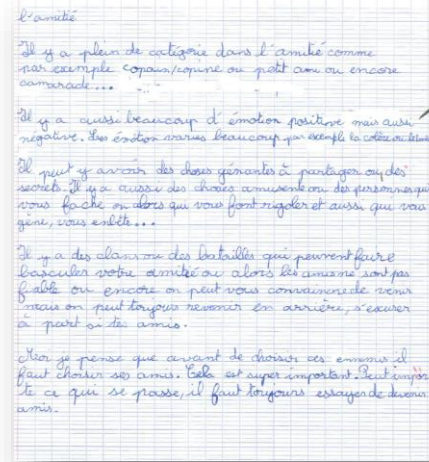 l'amitié
Il y a plein de catégorie dans l'amitié comme
par exemple copain/copine ou petit ami ou encore
camarade...
Il y a aussi beaucoup d'émotion positive mais aussi
négative. Les émotion varies beaucoup par exemple la colère ou
Il peut y avoir des choses génantes à partager ou des
secrets. Il y a aussi des choses amusente ou des personnes qui
vous fache ou alors qui vous font rigoler et aussi qui vous
gène, vous enbête...
Il y a des clans ou des batailles qui peuvent faire
basculer votre amitié ou alors les amis ne sont pas
fiable ou encore on peut vous convaincre de venir
mais on peut toujours revenir en arrière, s'exuser
à part si tes amis.
Moi je pense que avant de choisir ces ennemis il
faut choisir ses amis. Cela est super important. Peut impor
te ce qui se passe, il faut toujours essayer de devenir
amis.